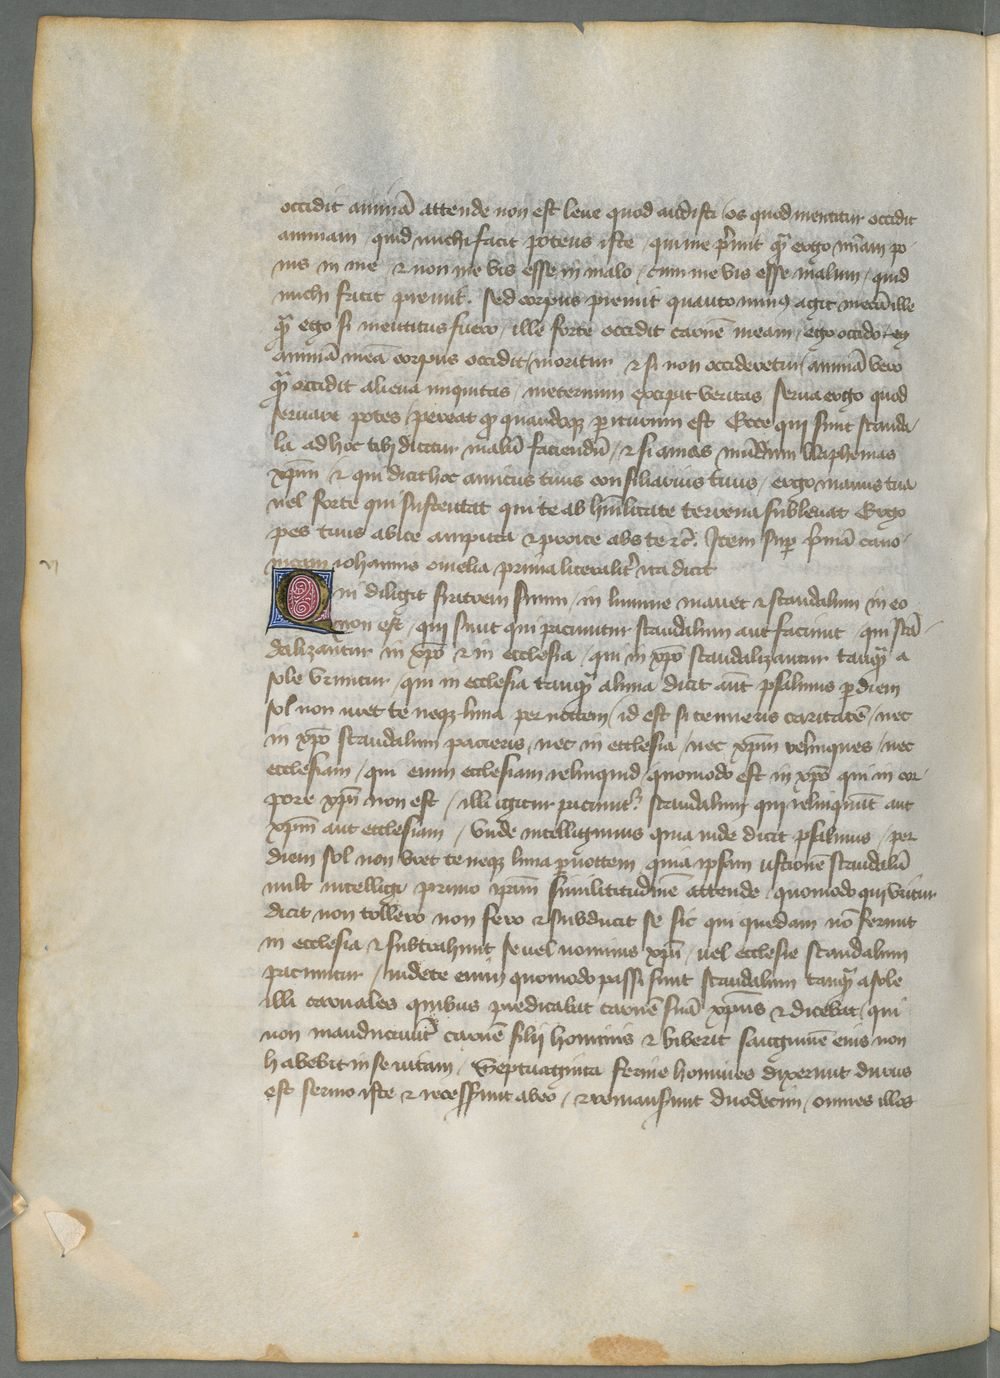 occidit animā attende non est leue quod audisti / os quod mentitur occidit
animam / quid michi facit potens iste / qui me p̄mit qr̄ ergo uīam po-
nis in me / ⁊ non me vis esse in malo / cum me vis esse malum / quid
michi facit premit. Sed corpus premit quanto minꝰ agit mecū ille
qr̄ ego si mentitus fuero / ille forte occidit carnē meam / ego occido
animā meā corpus occidit / moritur ⁊ si non occideretur / animā vero
qr̄ occidit aliena iniquitas / ineternum excipit veritas / serua ergo quod
seruare potes / pereat qͦ quandoqꝫ periturum est Ecce qui sunt scanda-
la ad hoc tibi dicetur malū faciendū / ⁊ si amas mūdum blasphemas
xp̄m ⁊ qui dicit hoc amicus tuus consiliarius tuus / ergo manus tua
uel forte qui sustentat qui te ab hūilitate terrena subleuat Ergo
pes tuus abice amputa ⁊ proice abs te ⁊c̄. Item sup p̄mā cano-
nicam iohannis omelia prima literalitʳ ita dicit
Qui diligit fratrem suum / in lumine manet ⁊ scandalum in eo
non est / qui sunt qui paciuntur scandalum aut faciunt / qui scā-
dalizantur in xp̄o ⁊ in ecclesia / qui in xp̄o scandalizantur tanqꝫ a
sole vruntur / qui in ecclesia tanqꝫ a luna dicit aūt psalmus p diem
sol non uret te neqꝫ luna per noctem / id est si tenueris caritatē / nec
in xp̄o scandalum pacieris / nec in ecclesia / nec xp̄m relinques / nec
ecclesiam / qui enim ecclesiam relinquid / quomodo est in xp̄o qui in cor-
pore xp̄i non est / illi igitur paciuntʳ scandalum qui relinquūt aut
xp̄m aut ecclesiam / vnde intelligimus quia inde dicit psalmus / per
diem sol non vret te neqꝫ luna p noctem quia ipsam ustionē scandalū
uult intelligi primo ip̄am similitudinē attende / quomodo qui vritur
dicit non tollero non fero ⁊ subducit se sic qui quedam nō ferunt
in ecclesia ⁊ subtrahunt se uel nominis xp̄i / uel ecclesie scandalum
paciuntur / uidete enim quomodo passi sunt scandalum tanqꝫ a sole
illi carnales quibus predicabat carnē suā xp̄us ⁊ dicebat / qui
non manducauit carnē filij hominis ⁊ biberit sanguinē eius non
habebit in se uitam / Septuaginta ferme homines dixerunt durus
est sermo iste ⁊ recesserunt ab eo / ⁊ remanserunt duodecim / omnes illos